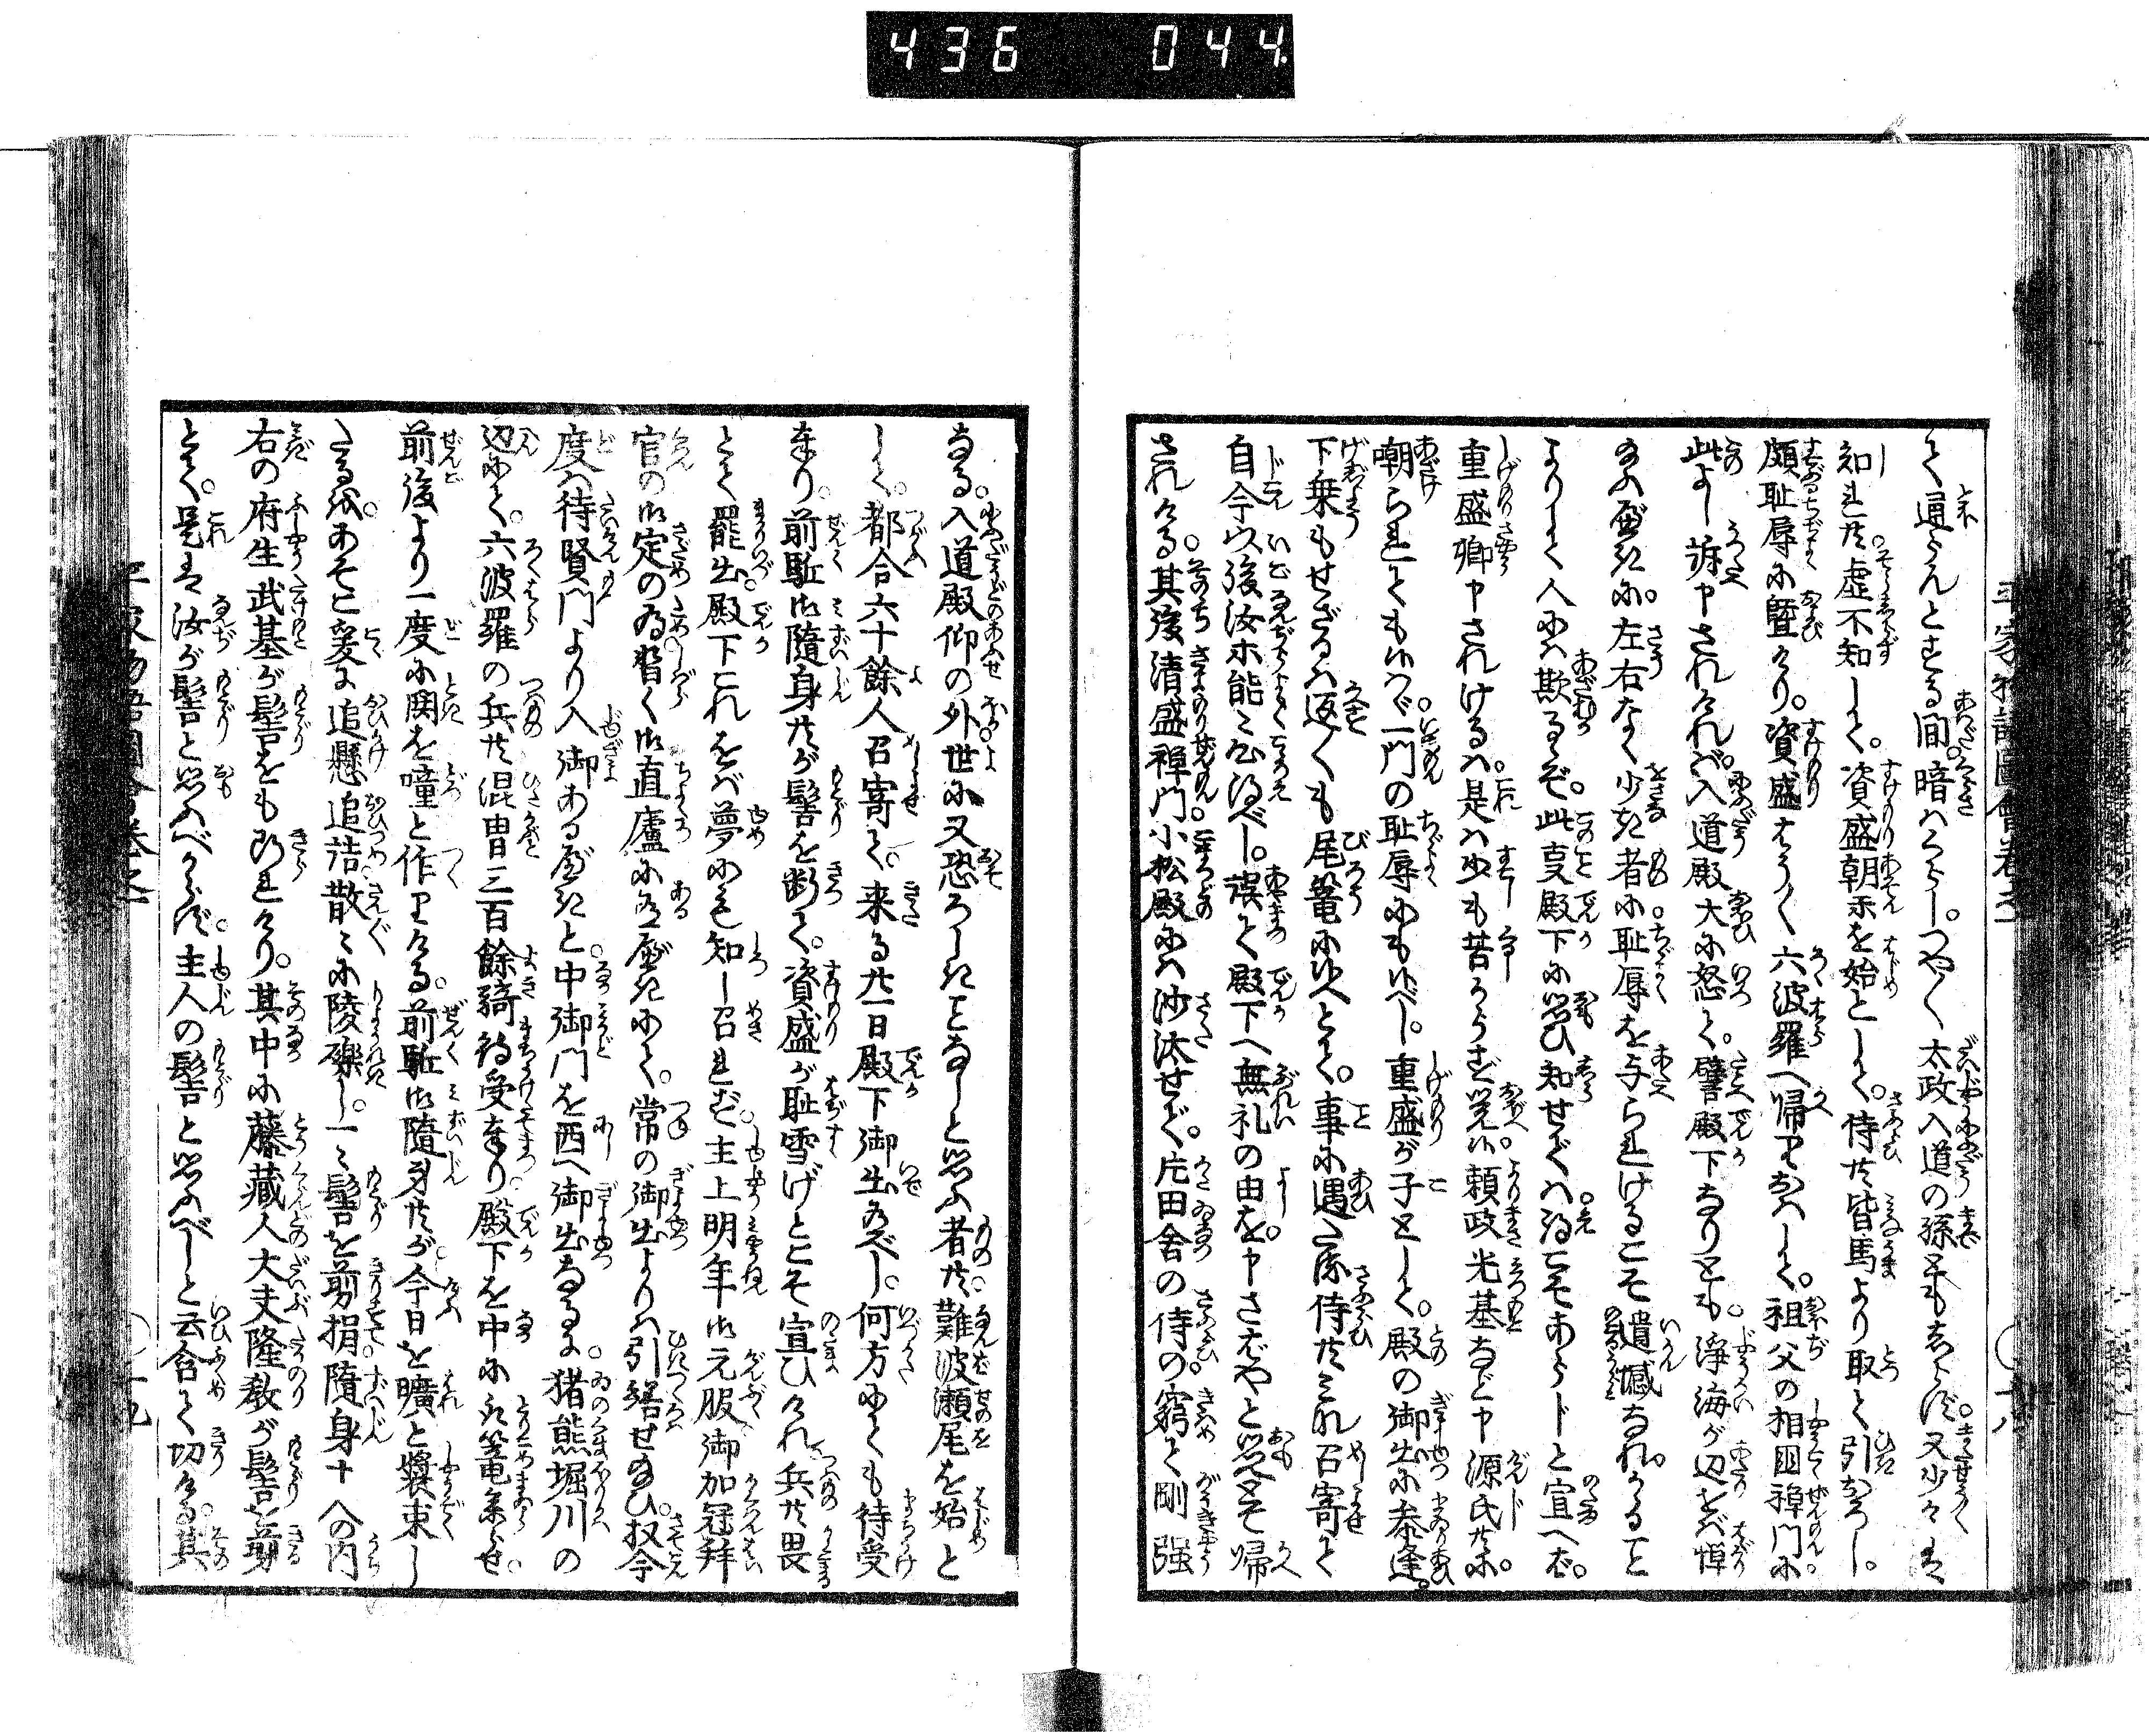 436 044
平家物語圖會卷之一
て通らんとする間。暗さはくらし。つや〳〵太政入道の孫ともしらず。又少々は
知れ共虚不知して。資盛朝臣を始として。侍共皆馬より取て引おろし。
頗耻辱に曁けり。資盛はう〳〵六波羅へ帰りおはして。祖父の相國禅門に
此よし訴申されければ。入道殿大に怒て。譬殿下なりとも。浄海が辺をば憚
給ふべきに。左右なく少き者に耻辱を与られけるこそ遺憾なれ。かゝることに
よりて人には欺るゝぞ。此事殿下に思ひ知せでは得こそあらじと宣へば。
重盛卿申されけるは。是は少も苦かるまじく覚候。頼政光基など申源氏共に。
嘲られても候はゞ一門の耻辱にも候べし。重盛が子として。殿の御出に参逢。
下乗もせざるは返〳〵も尾篭に候へとて。事に遇た侍共みな召寄て
自今以後汝等能々心得べし。誤て殿下へ無礼の由を申さばやと思へとぞ帰
されける。其後清盛禅門。小松殿には沙汰せず。片田舎の侍の。窮て剛強
なる。入道殿仰の外世に又恐ろしきことなしと思ふ者共。難波瀬尾を始と
して。都合六十餘人召寄て。来る廿一日殿下御出あるべし。何方にても待受
奉り。前駈御隨身共が髻を断て。資盛が耻雪げとこそ宣ひけれ。兵共畏
とて罷出。殿下これをば夢にも知し召れず。主上明年御元服御加冠拜
官の御定の為。暫く御直廬に有べきにて。常の御出よりは引繕せ給ひ。扠今
度は待賢門より入御あるべきと。中御門を西へ御出なるに。猪熊堀川の
辺にて。六波羅の兵共混冑三百餘騎待受奉り。殿下を中に取篭参らせ。
前後より一度に鬨を噇と作りける。前駈御隨身共が。今日を曠と装束し
たるを。あそこ爰に追懸追詰散々に陵礫し。一々髻を剪捐隨身十人の内
右の府生武基が髻をも断れけり。其中に藤藏人大夫隆教が髻を剪
とて。是は汝が髻と思ふべからず。主人の髻と思ふべしと云含て切ける。其
平家物語圖會卷之一